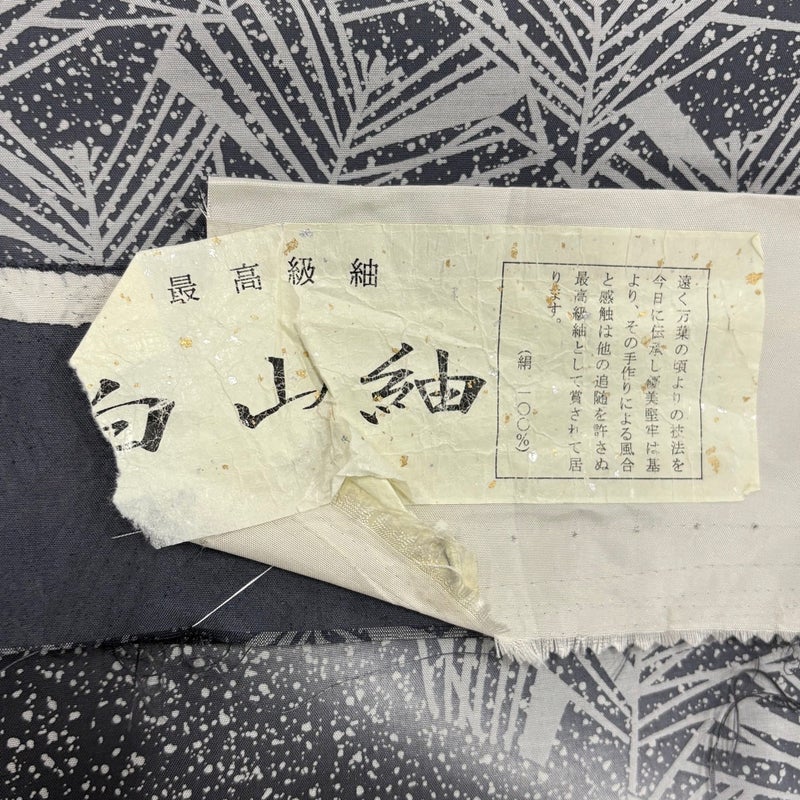 最高級紬
白山紬
遠く万葉の頃よりの技法を
今日に伝承し優美堅牢は基
より、その手作りによる風合
と感触は他の追随を許さぬ
最高級紬として賞されて居
ります。
(絹 一〇〇%)